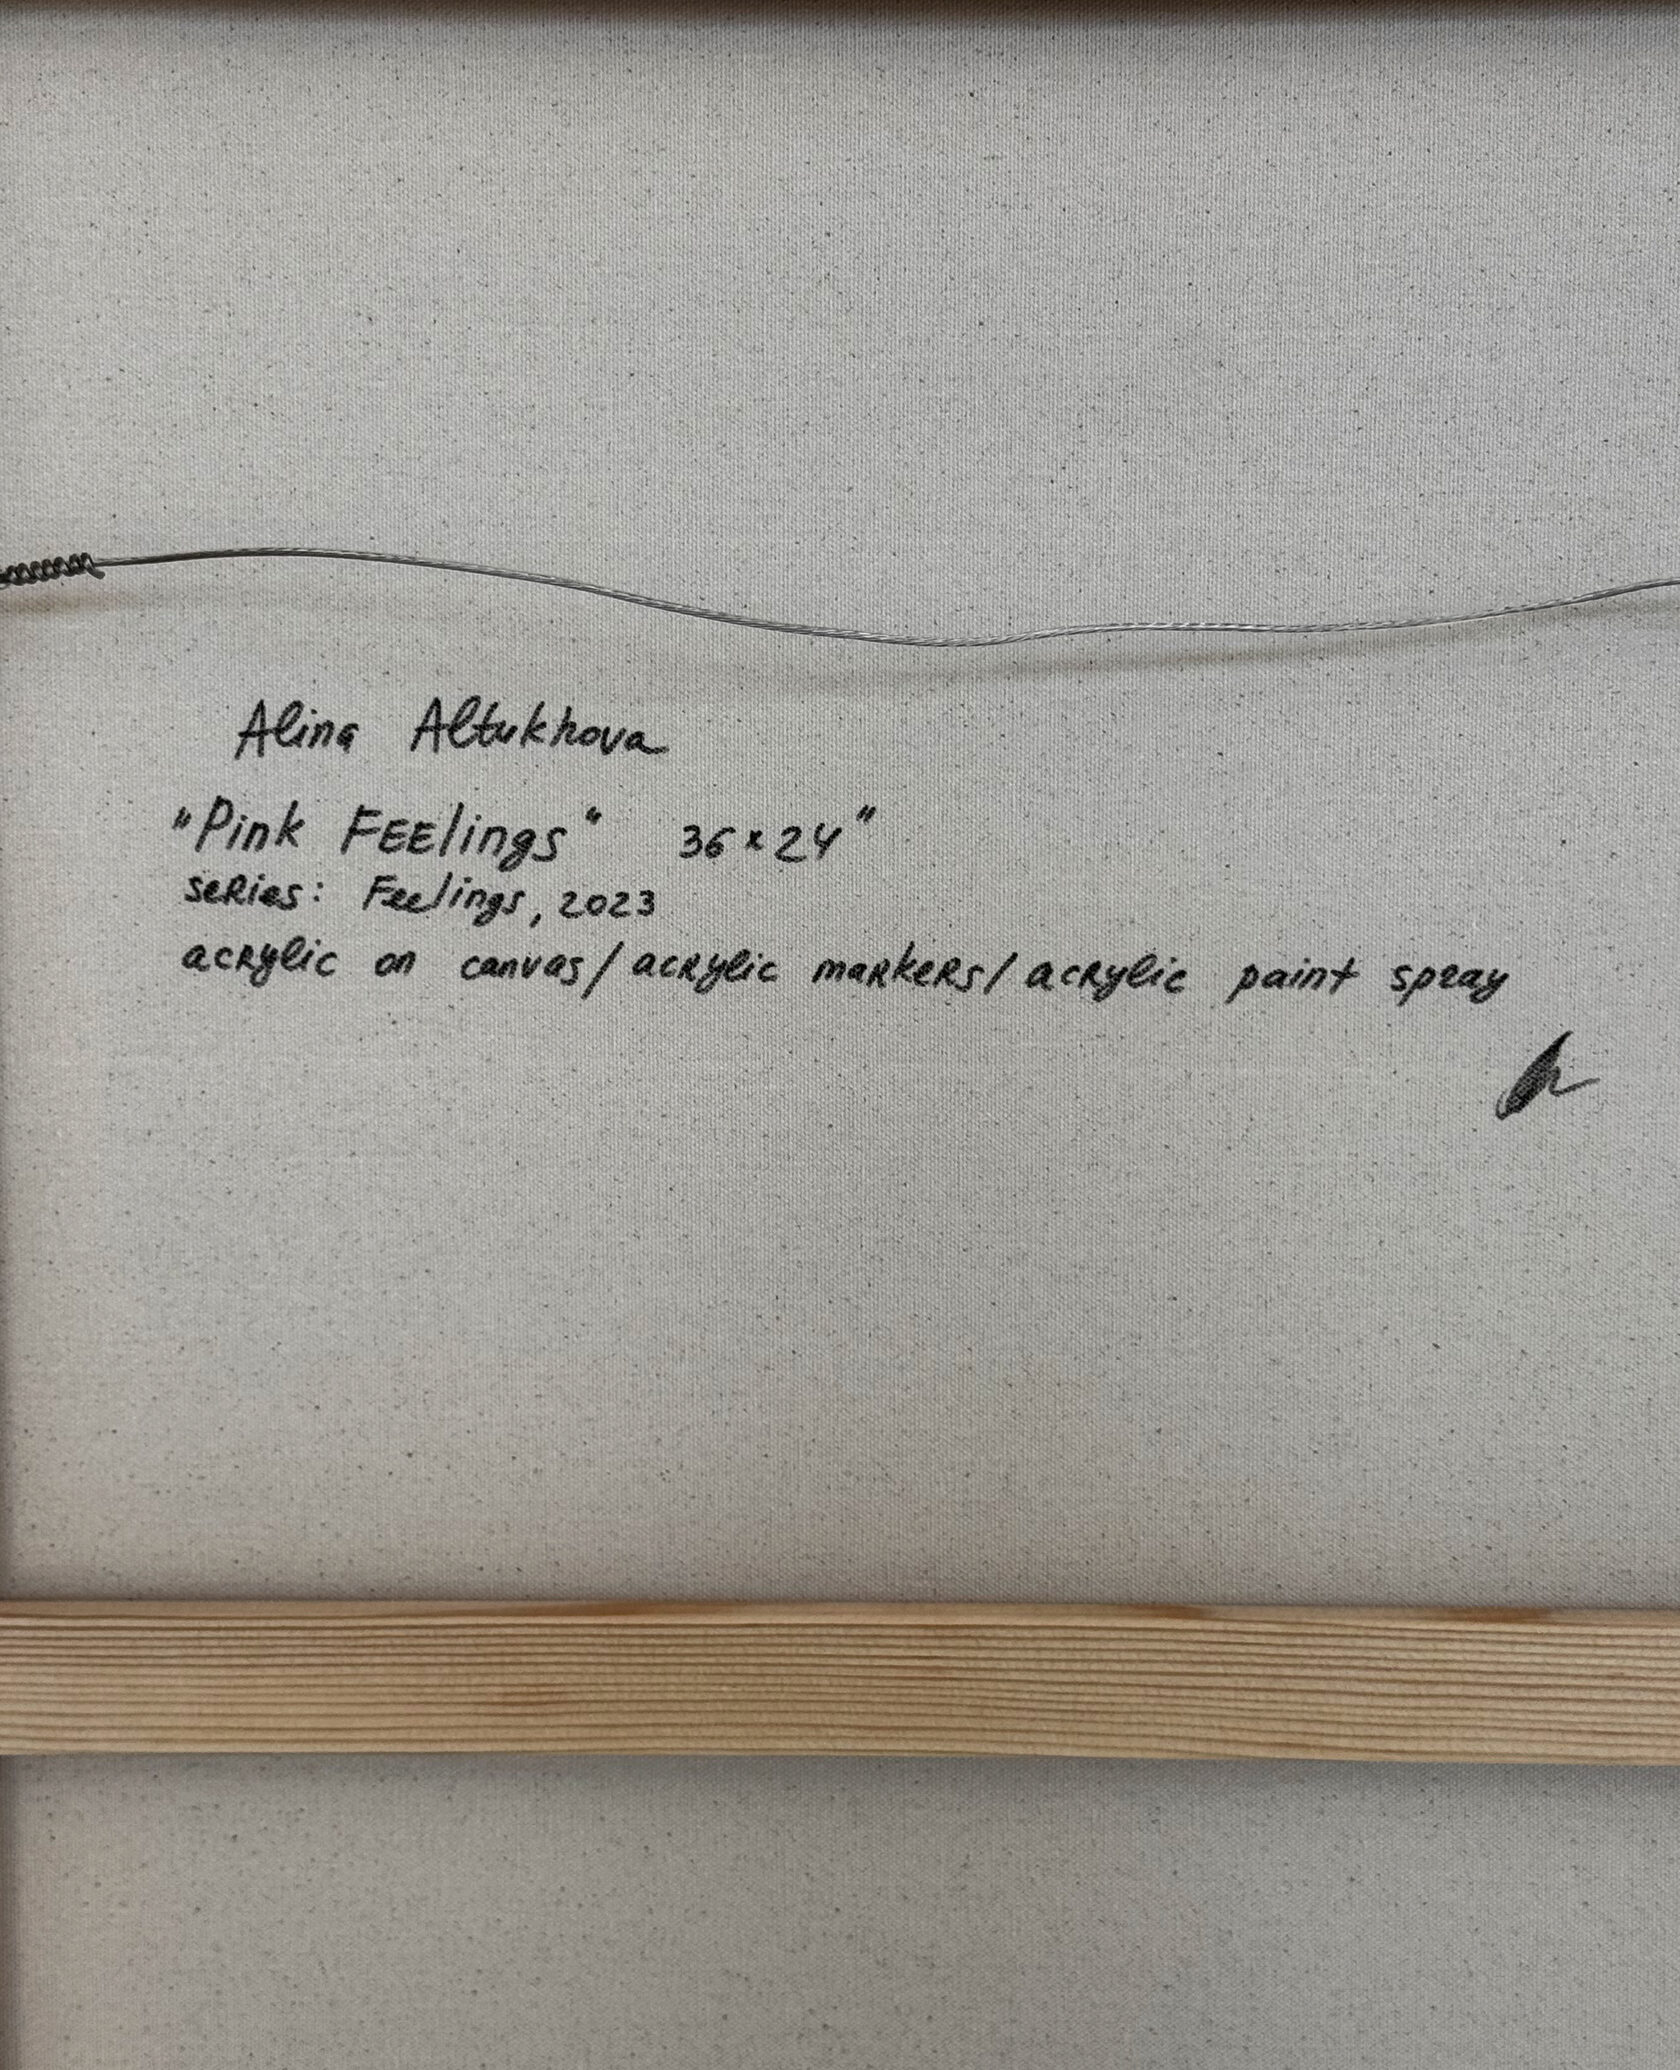 Alina Altukhova
"Pink FEElings" 36×24"
seRies: Feelings, 2023
acRylic on canvas/acRylic maRkeRs/acRylic paint spray